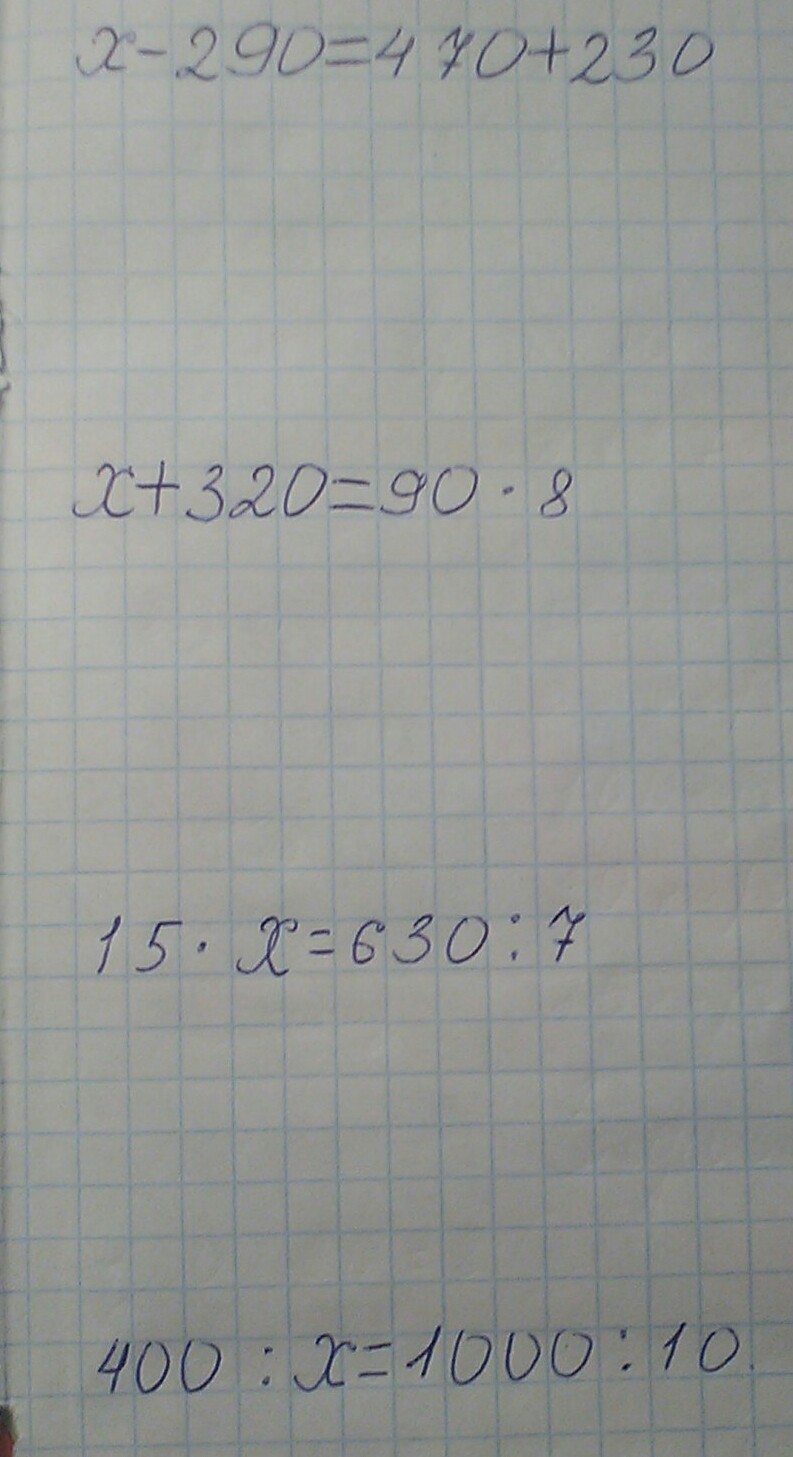 x-290=470+230
x+320=90·8
15·x=630:7
400:x=1000:10.